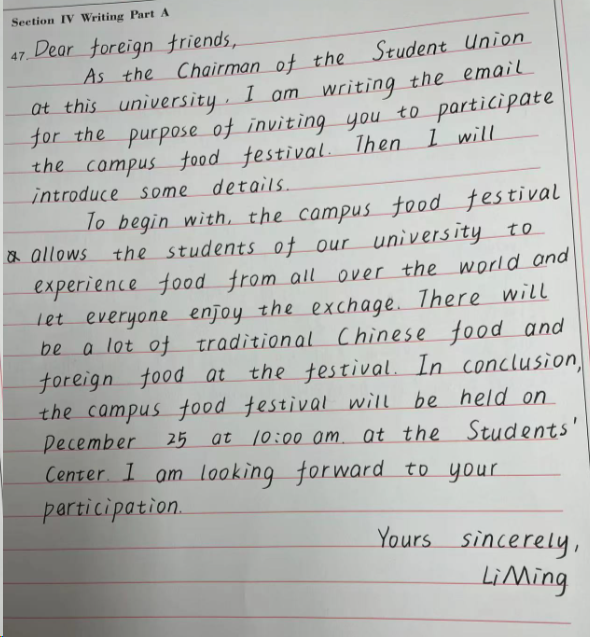 Section IV Writing Part A
47. Dear foreign friends,
As the Chairman of the Student Union
at this university, I am writing the email
for the purpose of inviting you to participate
the campus food festival. Then I will
introduce some details.
To begin with, the campus food festival
allows the students of our university to
experience food from all over the world and
let everyone enjoy the exchage. There will
be a lot of traditional Chinese food and
foreign food at the festival. In conclusion,
the campus food festival will be held on
December 25 at 10:00 am. at the Students'
Center. I am looking forward to your
participation.
Yours sincerely,
LiMing